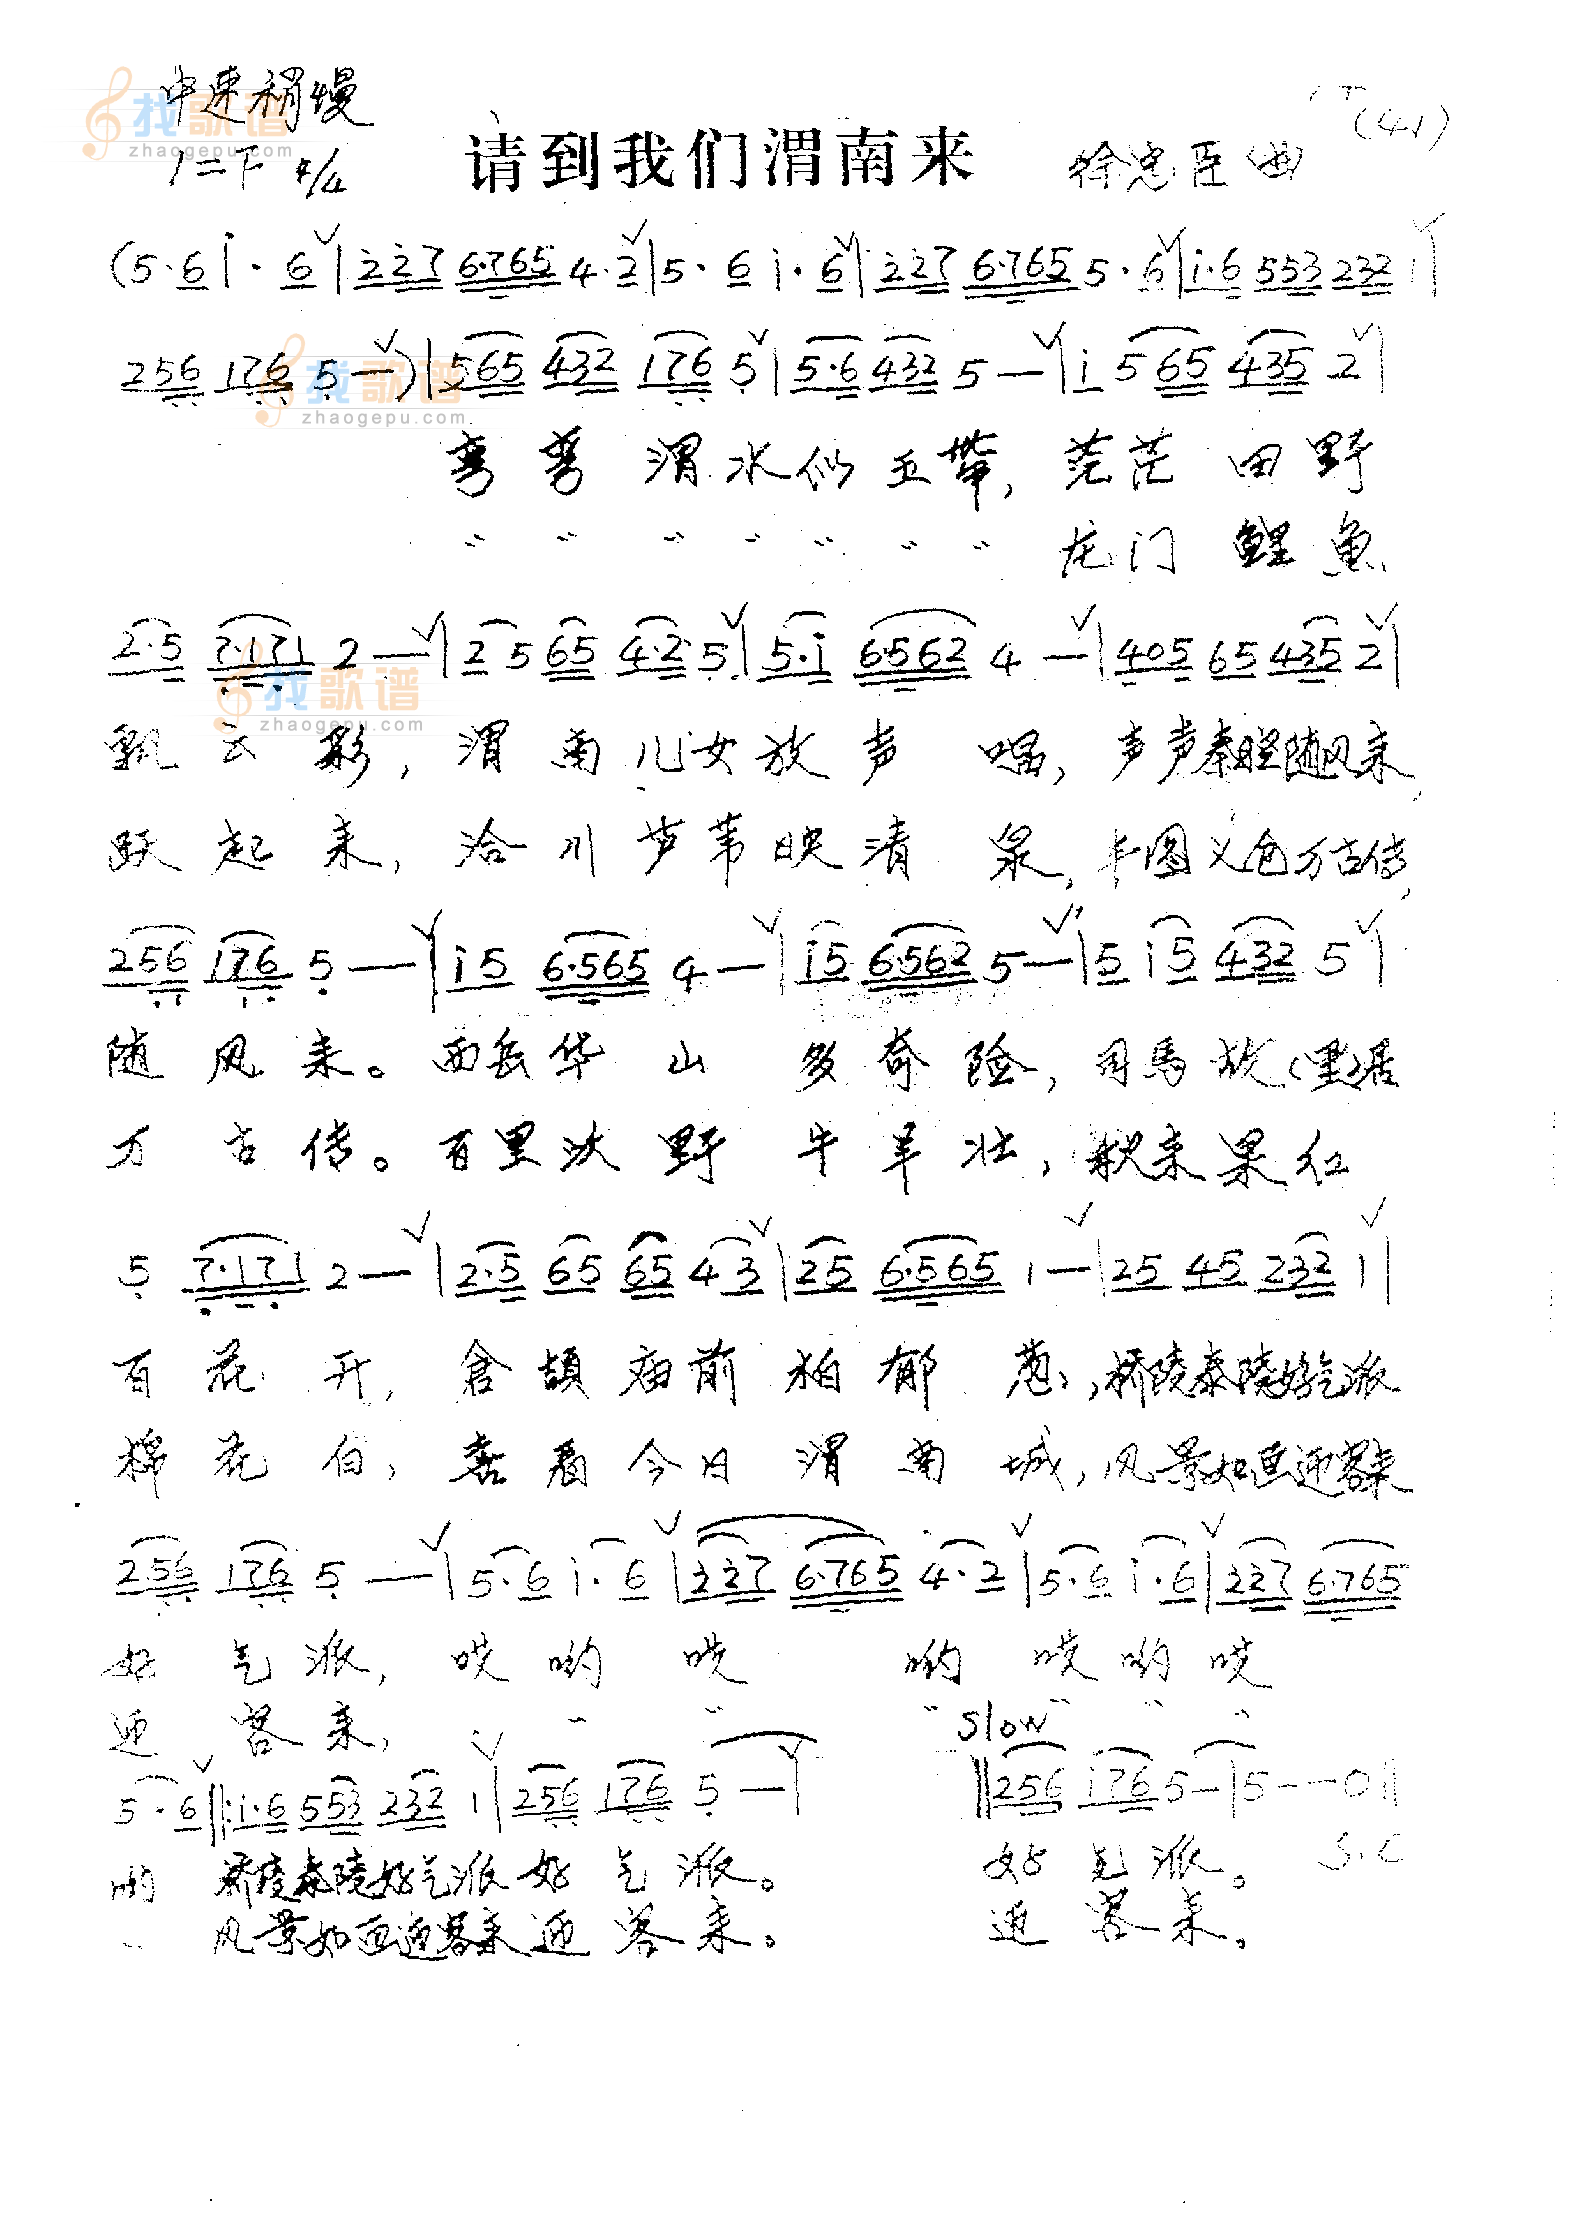 中速稍慢
1=下 4/4
请到我们渭南来
徐忠臣(曲)
(41)
(5·6 i·6 | 227 6·765 4·2 | 5·6 i·6 | 227 6·765 5·6 | i·6 553 232 1 |
256 176 5 — ) | 565 432 176 5 | 5·6 432 5 — | i 5 65 435 2 |
弯弯渭水似玉带, 茫茫田野
〃 〃 〃 〃 〃 〃 〃 龙门鲤鱼
2·5 7·171 2 — | 2 5 65 4·2 5 | 5·i 6·562 4 — | 405 65 435 2 |
飘云彩, 渭南儿女放声唱, 声声秦腔随风来,
跃起来, 洽川芦苇映清泉, 丰图义仓万古传,
256 176 5 — | i5 6·565 4 — | i5 6·562 5 — | 5 i5 432 5 |
随风来。西岳华山多奇险, 司马故(里)居
万古传。百里沃野牛羊壮, 秋来果红
5 7·171 2 — | 2·5 65 65 43 | 25 6·565 1 — | 25 45 232 1 |
百花开, 仓颉庙前柏郁葱, 桥陵泰陵好气派
棉花白, 喜看今日渭南城, 风景如画迎客来
256 176 5 — | 5·6 i·6 | 227 6·765 4·2 | 5·6 i·6 | 227 6·765
好气派, 哎哟哎 哟哎哟哎
迎客来, 〃 〃 〃 〃 〃 〃 〃
Slow
5·6 ‖: i·6 553 232 1 | 256 176 5 — | ‖ 256 176 5 — | 5 — — 0 ‖
哟 桥陵泰陵好气派好气派。 好气派。 S.C
〃 风景如画迎客来迎客来。 迎客来。
找歌谱
zhaogepu.com
找歌谱
zhaogepu.com
找歌谱
zhaogepu.com